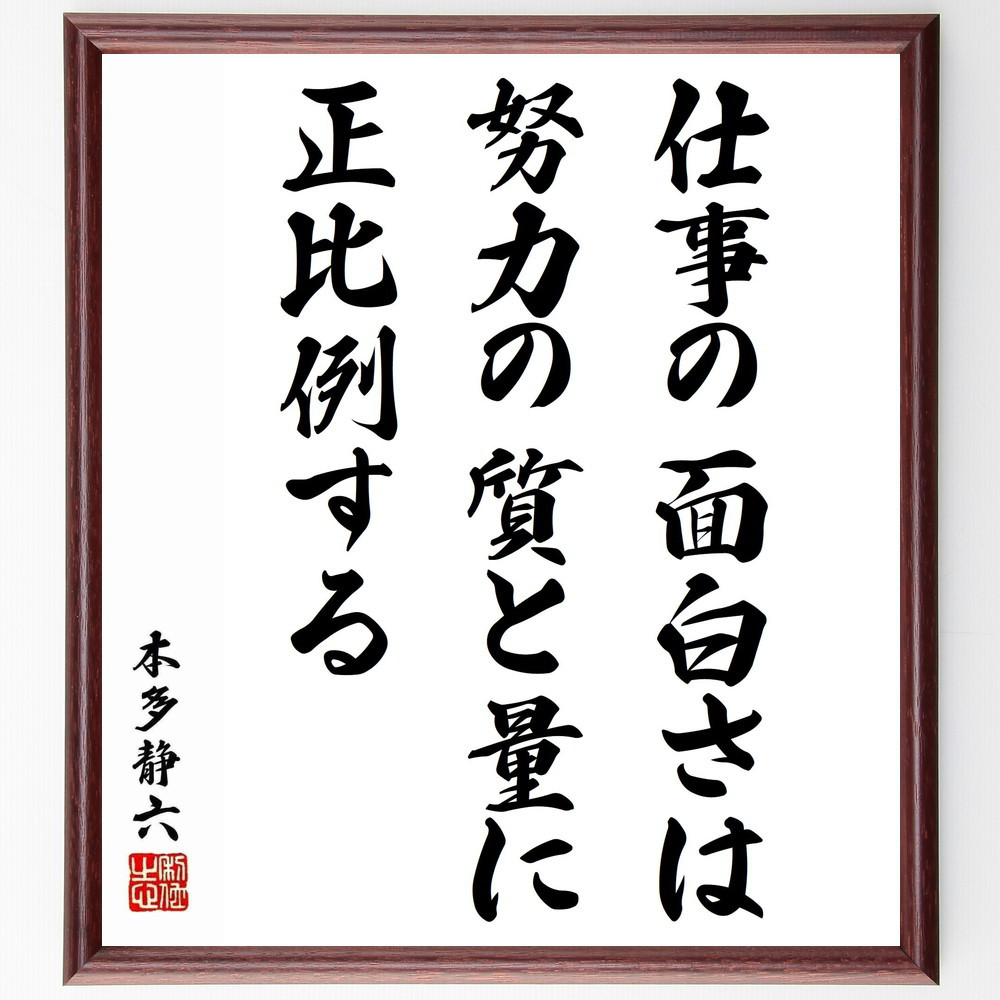 仕事の面白さは
努力の質と量に
正比例する
本多静六